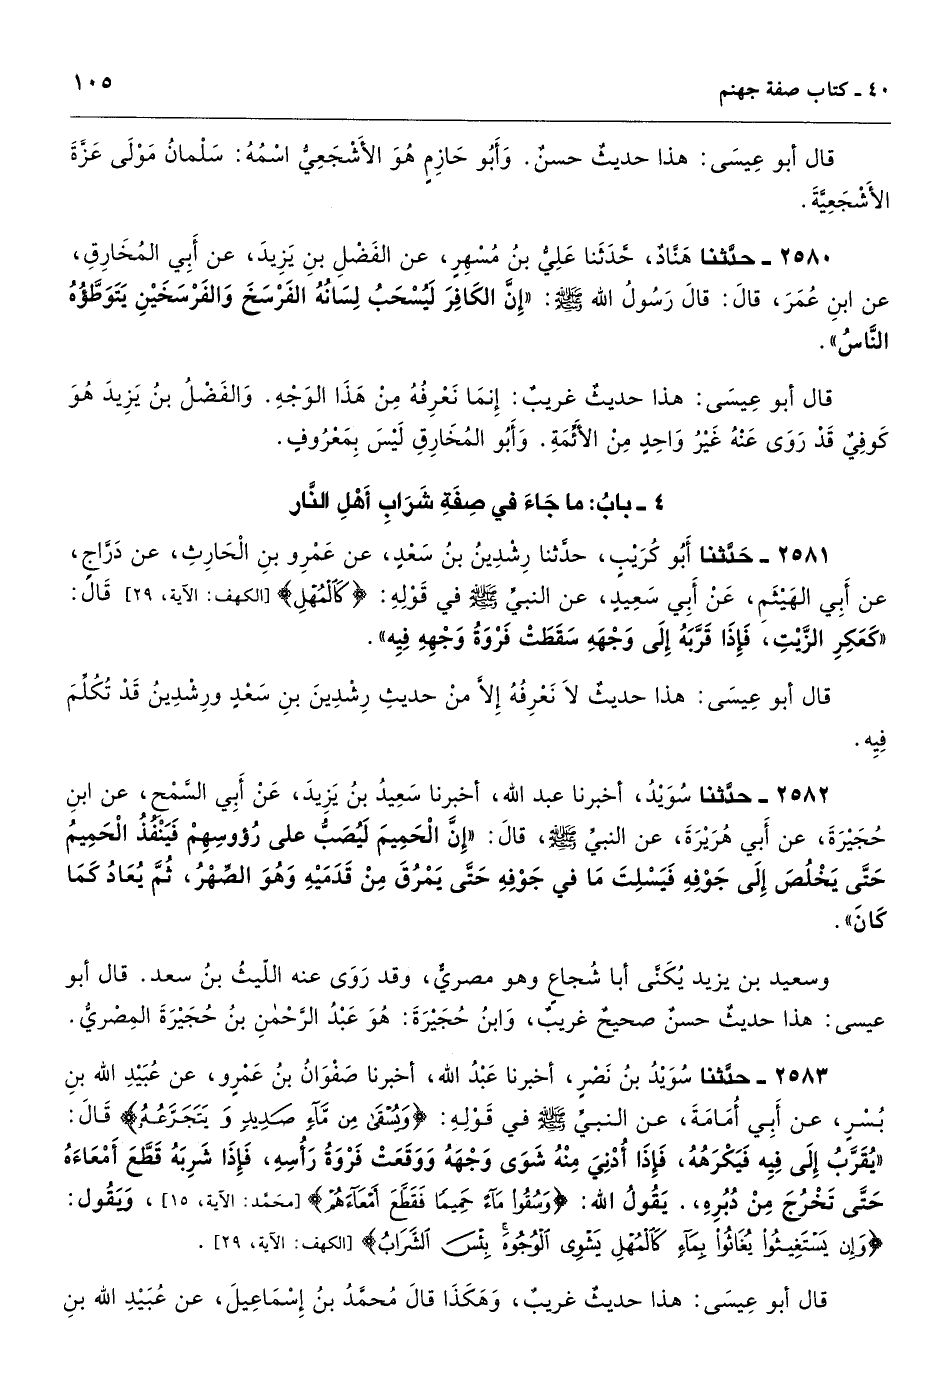 ٤٠ ـ كتاب صفة جهنم
١٠٥
قال أبو عِيسَى: هذا حديثٌ حسنٌ. وَأَبُو حَازِمٍ هُوَ الأَشْجَعِيُّ اسْمُهُ: سَلْمانُ مَوْلَى عَزَّةَ
الأَشْجَعِيَّةَ.
٢٥٨٠ ـ حدَّثنا هَنَّادٌ، حَّدَثَنا عَلِيُّ بنُ مُسْهِرٍ، عن الفَضْلِ بنِ يَزِيدَ، عن أَبِي المُخَارِقِ،
عن ابنِ عُمَرَ، قالَ: قالَ رَسُولُ الله ﷺ: «إِنَّ الكافِرَ لَيُسْحَبُ لِسَانُهُ الفَرْسَخَ وَالفَرْسَخَيْنِ يَتَوَطَّؤُهُ
النَّاسُ».
قال أبو عِيسَى: هذا حديثٌ غريبٌ: إنمَا نَعْرِفُهُ مِنْ هَذَا الوَجْهِ. وَالفَضْلُ بنُ يَزِيدَ هُوَ
كَوفِيٌ قَدْ رَوَى عَنْهُ غَيْرُ وَاحِدٍ مِنْ الأَئَّمَةِ. وَأَبُو المُخَارِقِ لَيْسَ بِمَعْرُوفٍ.
٤ ـ بابُ: ما جَاءَ في صِفَةِ شَرَابِ أَهْلِ النَّار
٢٥٨١ ـ حَدَّثنا أَبُو كُرَيْبٍ، حدَّثنا رِشْدِينُ بنُ سَعْدٍ، عن عَمْرِو بنِ الْحَارِثِ، عن دَرَّاجٍ،
عن أَبِي الهَيْثَمِ، عَنْ أَبِي سَعِيدٍ، عن النبيِّ ﷺ في قَوْلِهِ: ﴿كَالْمُهْلِ﴾ [الكهف: الآية، ٢٩] قَالَ:
«كَعَكِرِ الزَّيْتِ، فَإِذَا قَرَّبَهُ إِلَى وَجْهِهِ سَقَطَتْ فَرْوَةُ وَجْهِهِ فِيهِ».
قال أبو عِيسَى: هذا حديثٌ لاَ نَعْرِفُهُ إِلاَّ منْ حديثِ رِشْدِينَ بنِ سَعْدٍ ورِشْدِينُ قَدْ تُكُلِّمَ
فِيِه.
٢٥٨٢ ـ حدَّثنا سُوَيْدُ، أخبرنا عبد الله، أخبرنا سَعِيدُ بنُ يَزِيدَ، عَنْ أَبِي السَّمْحِ، عن ابنِ
حُجَيْرَةَ، عن أَبي هُرَيْرَةَ، عن النبيِّ ﷺ، قالَ: «إِنَّ الْحَمِيمَ لَيُصَبُّ على رُؤوسِهِمْ فَيَنْفُذُ الْحَمِيمُ
حَتَّى يَخْلُصَ إِلَى جَوْفِهِ فَيَسْلِتَ مَا في جَوْفِهِ حَتَّى يَمْرُقَ مِنْ قَدَمَيْهِ وَهُوَ الصِّهْرُ، ثُمَّ يُعَادُ كَمَا
كَانَ».
وسعيد بن يزيد يُكَنَّى أبا شُجاعٍ وهو مصريٌّ، وقد رَوَى عنه اللّيثُ بنُ سعد. قال أبو
عيسى: هذا حديثٌ حسنٌ صحيحٌ غريبٌ، وَابنُ حُجَيْرَةَ: هُوَ عَبْدُ الرَّحْمٰنِ بنُ حُجَيْرَةَ المِصْريُّ.
٢٥٨٣ ـ حدَّثنا سُوَيْدُ بنُ نَصْرٍ، أخبرنا عَبْدُ الله، أخبرنا صَفْوَانُ بنُ عَمْرٍو، عن عُبَيْدِ الله بنِ
بُسْرٍ، عن أَبِي أُمَامَةَ، عن النبيِّ ﷺ في قَوْلِهِ: ﴿وَيُسْقَىٰ مِن مَّآءٍ صَدِيدٍ و يَتَجَرَّعُهُ﴾ قَالَ:
«يُقَرَّبُ إِلَى فِيهِ فَيَكْرَهُهُ، فَإِذَا أُدْنِيَ مِنْهُ شَوَى وَجْهَهُ وَوَقَعَتْ فَرْوَةُ رَأْسِهِ، فَإِذَا شَرِبَهُ قَطَّعَ أَمْعَاءَهُ
حَتَّى تَخْرُجَ مِنْ دُبُرِهِ،. يَقُولُ الله: ﴿وَسُقُوا مَآءً حَمِيمًا فَقَطَّعَ أَمْعَآءَهُمْ﴾ [محمَّد: الآية، ١٥]، وَيَقُول:
﴿وَإِن يَسْتَغِيثُوا۟ يُغَاثُوا۟ بِمَآءٍ كَالْمُهْلِ يَشْوِى الْوُجُوهَ ۚ بِئْسَ الشَّرَابُ﴾ [الكهف: الآية، ٢٩].
قال أبو عِيسَى: هذا حديثٌ غريبٌ، وَهَكَذَا قالَ مُحمَّدُ بنُ إِسْمَاعِيلَ، عن عُبَيْدِ الله بنِ